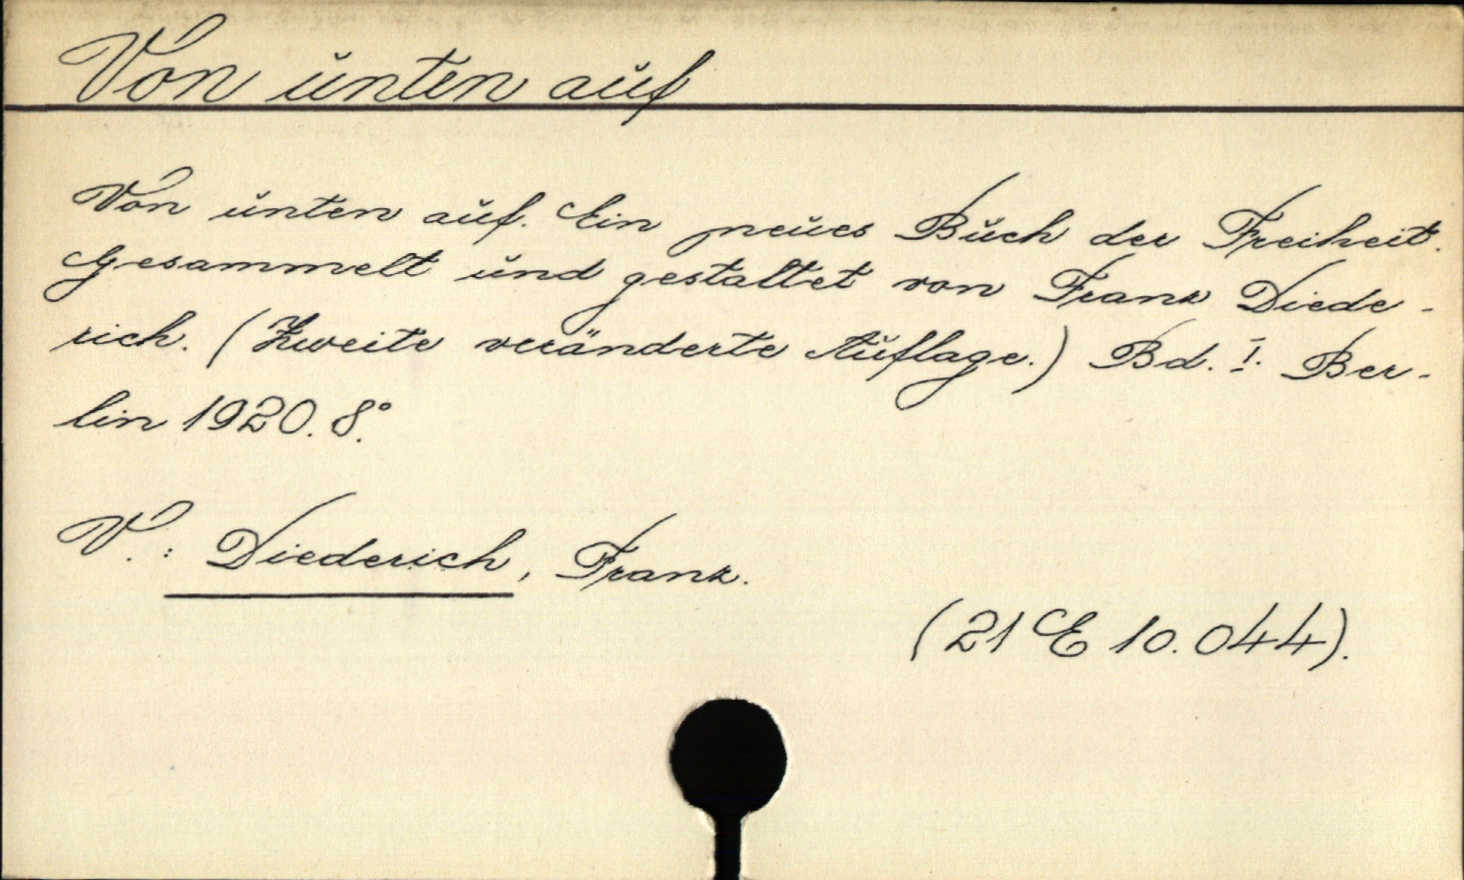 Von unten auf
Von unten auf. Ein neues Buch der Freiheit.
Gesammelt und gestaltet von Franz Diede-
rich. (Zweite veränderte Auflage.) Bd. I. Ber-
lin 1920. 8°.
V.: Diederich, Franz.
(21 E 10.044).